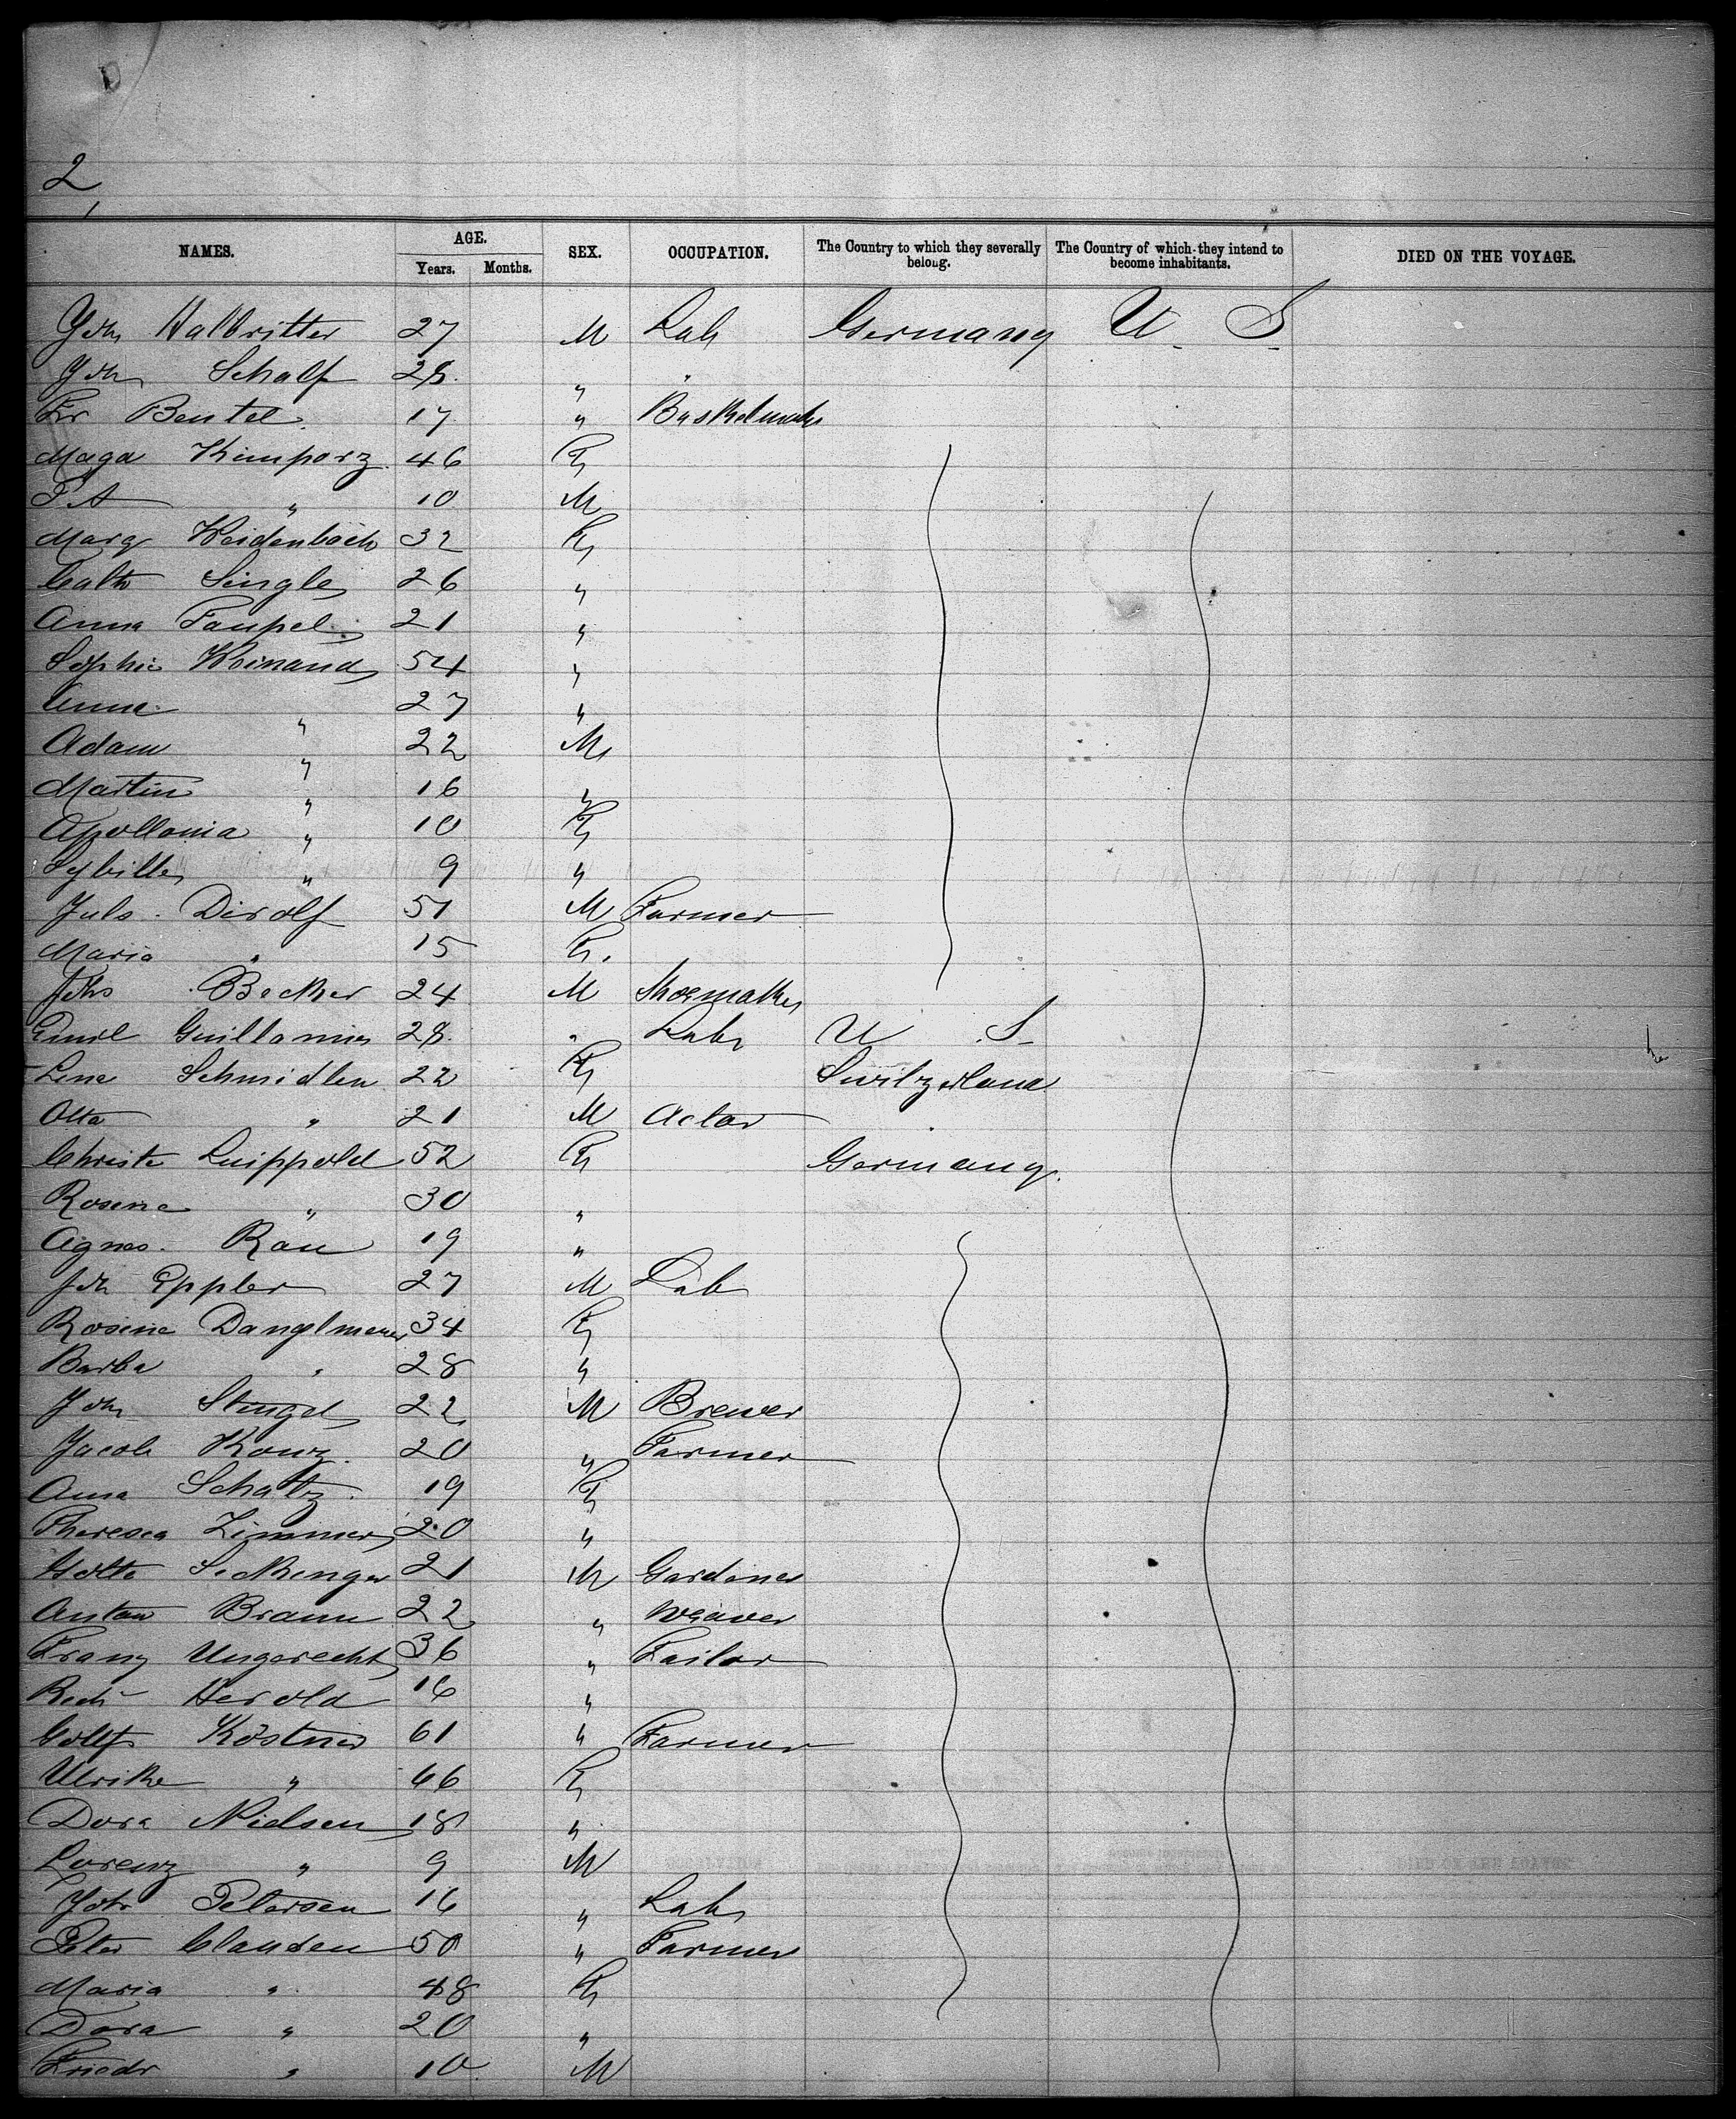 2
NAMES. AGE. SEX. OCCUPATION. The Country to which they severally belong. The Country of which they intend to become inhabitants. DIED ON THE VOYAGE.
Years. Months.
Joh Halbritter 27 M Lab Germany U. S.
Joh Schalf 28 " "
Fr Beutel 17 "
Maga 46 F
" 10 M
Marg Weidenbach 32 F
Cath Single 26 "
Anna Faupel 21 "
Sophie Weinand 54 "
Anna " 27 "
Adam " 22 M
Martin " 16 "
Apollonia " 10 F
Sybilla " 9 "
Juls. Dirolf 51 M Farmer
Maria " 15 F.
Johs Becker 24 M Shoemaker
Emil 28 " Lab U S
Lina Schmidlin 22 F Switzerland
Otto " 21 M Actor
Christe Luippold 52 F Germany.
Rosine " 30 "
Agnes. Rau 19 "
Joh Eppler 27 M Lab
Rosine 34 F
Barba " 28 "
Joh Stengel 22 M Brewer
Jacob 20 " Farmer
Anna Schatz. 19 F
Theresa Zimmer 20 "
Gotte 21 M Gardener
Anton Braun 22 " Weaver
Franz Ungerecht 36 " Tailor
Herold 16 "
Köstner 61 " Farmer
Ulrike " 66 F
Dora Nielsen 18 "
Lorenz " 9 M
Joh Petersen 16 " Lab
Peter Clausen 50 " Farmer
Maria " 48 F
Dora " 20 "
Friedr " 10 M